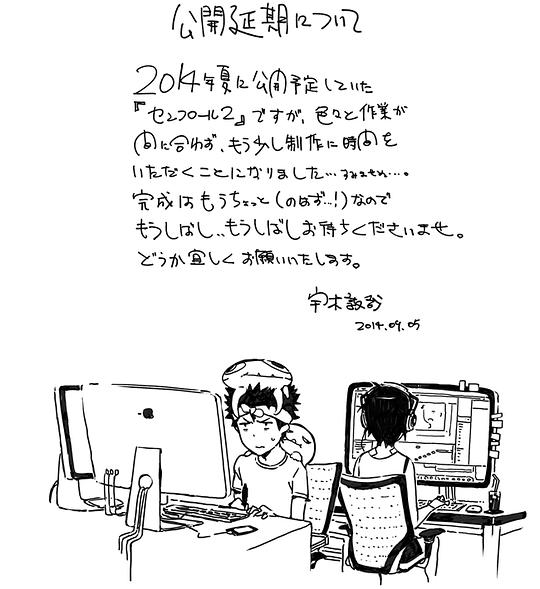 公開延期について
2014年夏に公開予定していた
『センコロール2』ですが、色々と作業が
間に合わず、もう少し制作に時間を
いただくことになりました…すみません…。
完成はもうちょっと(のはず…!)なので
もうしばし、もうしばしお待ちくださいませ。
どうか宜しくお願いいたします。
宇木敦哉
2014.09.05